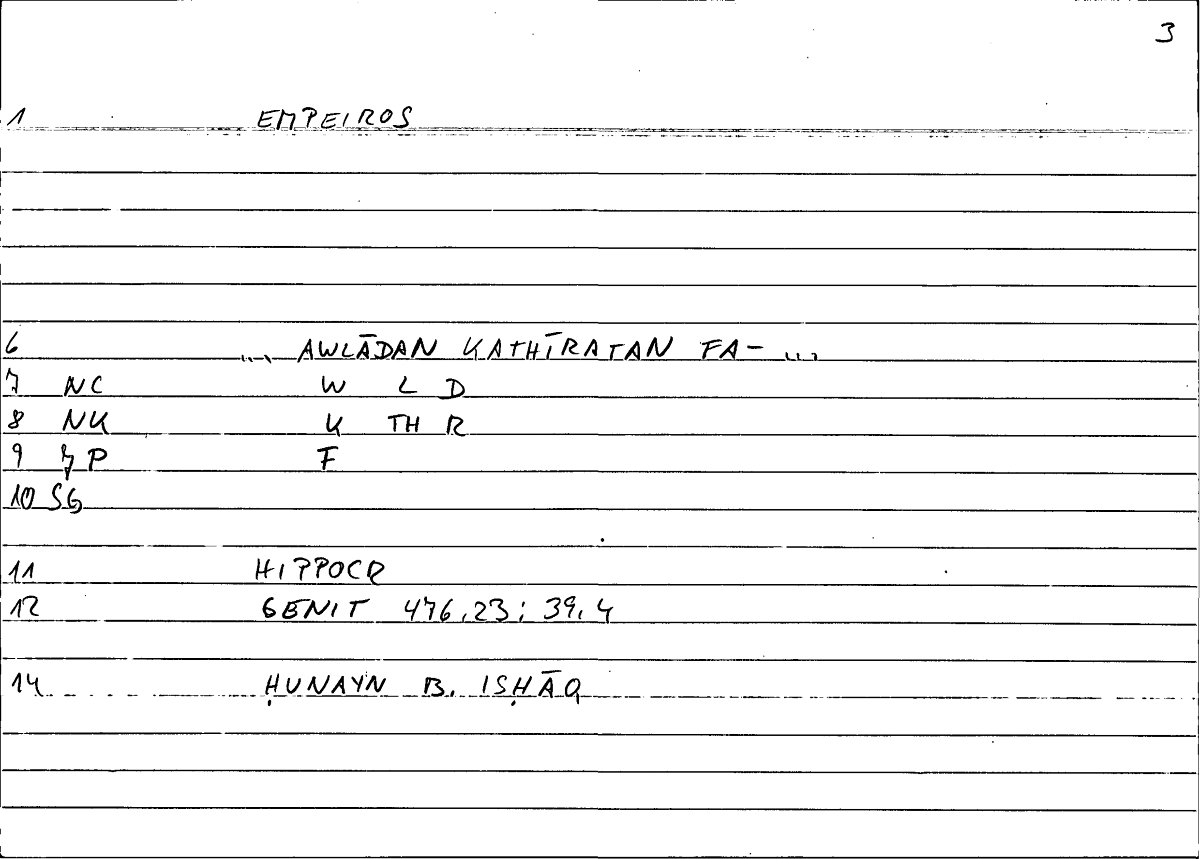 3
1 EMPEIROS
6 ... AWLĀDAN KATHĪRATAN FA- ...
7 NC W L D
8 NK K TH R
9 7 P F
10 SG
11 HIPPOCR
12 GENIT 476,23; 39,4
14 ḤUNAYN B. ISḤĀQ